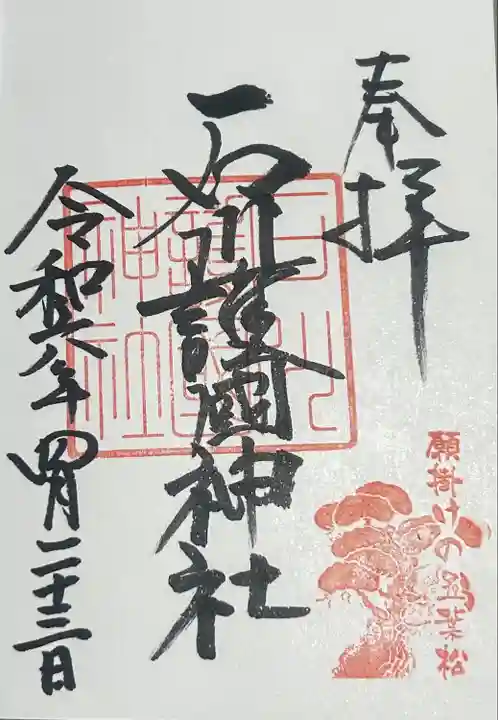 奉拝
願掛けの五葉松
石川護國神社
令和六年四月二十三日